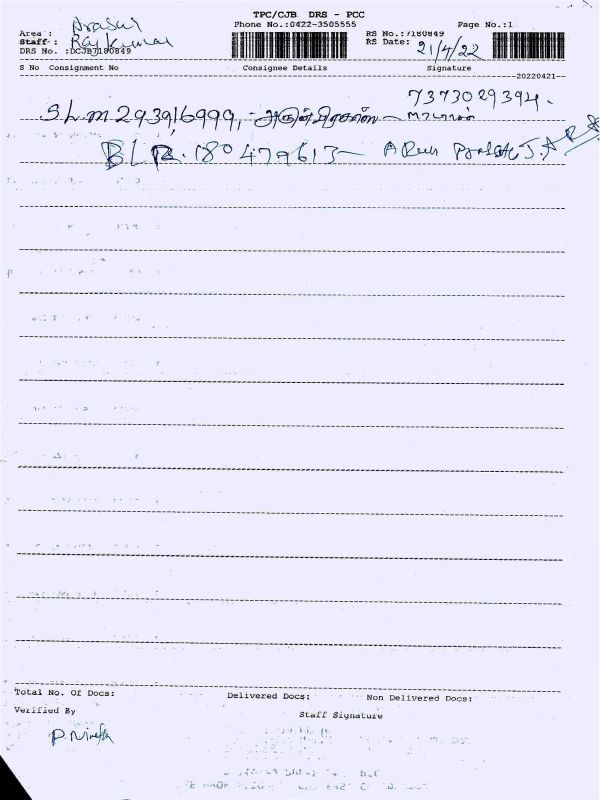 TPC/CJB DRS - PCC
Phone No.:0422-3505555 Page No.:1
Area : Arasur
Staff : Raj Kumar
DRS No. :DCJBJ180849
RS No.:/180849
RS Date: 21/4/22
S No Consignment No Consignee Details Signature
20220421
7373029394.
SLM 293916999, - அருள்பிரகாஷ் -
BLR. 180479613 - ARun
Total No. Of Docs: Delivered Docs: Non Delivered Docs:
Verified By Staff Signature